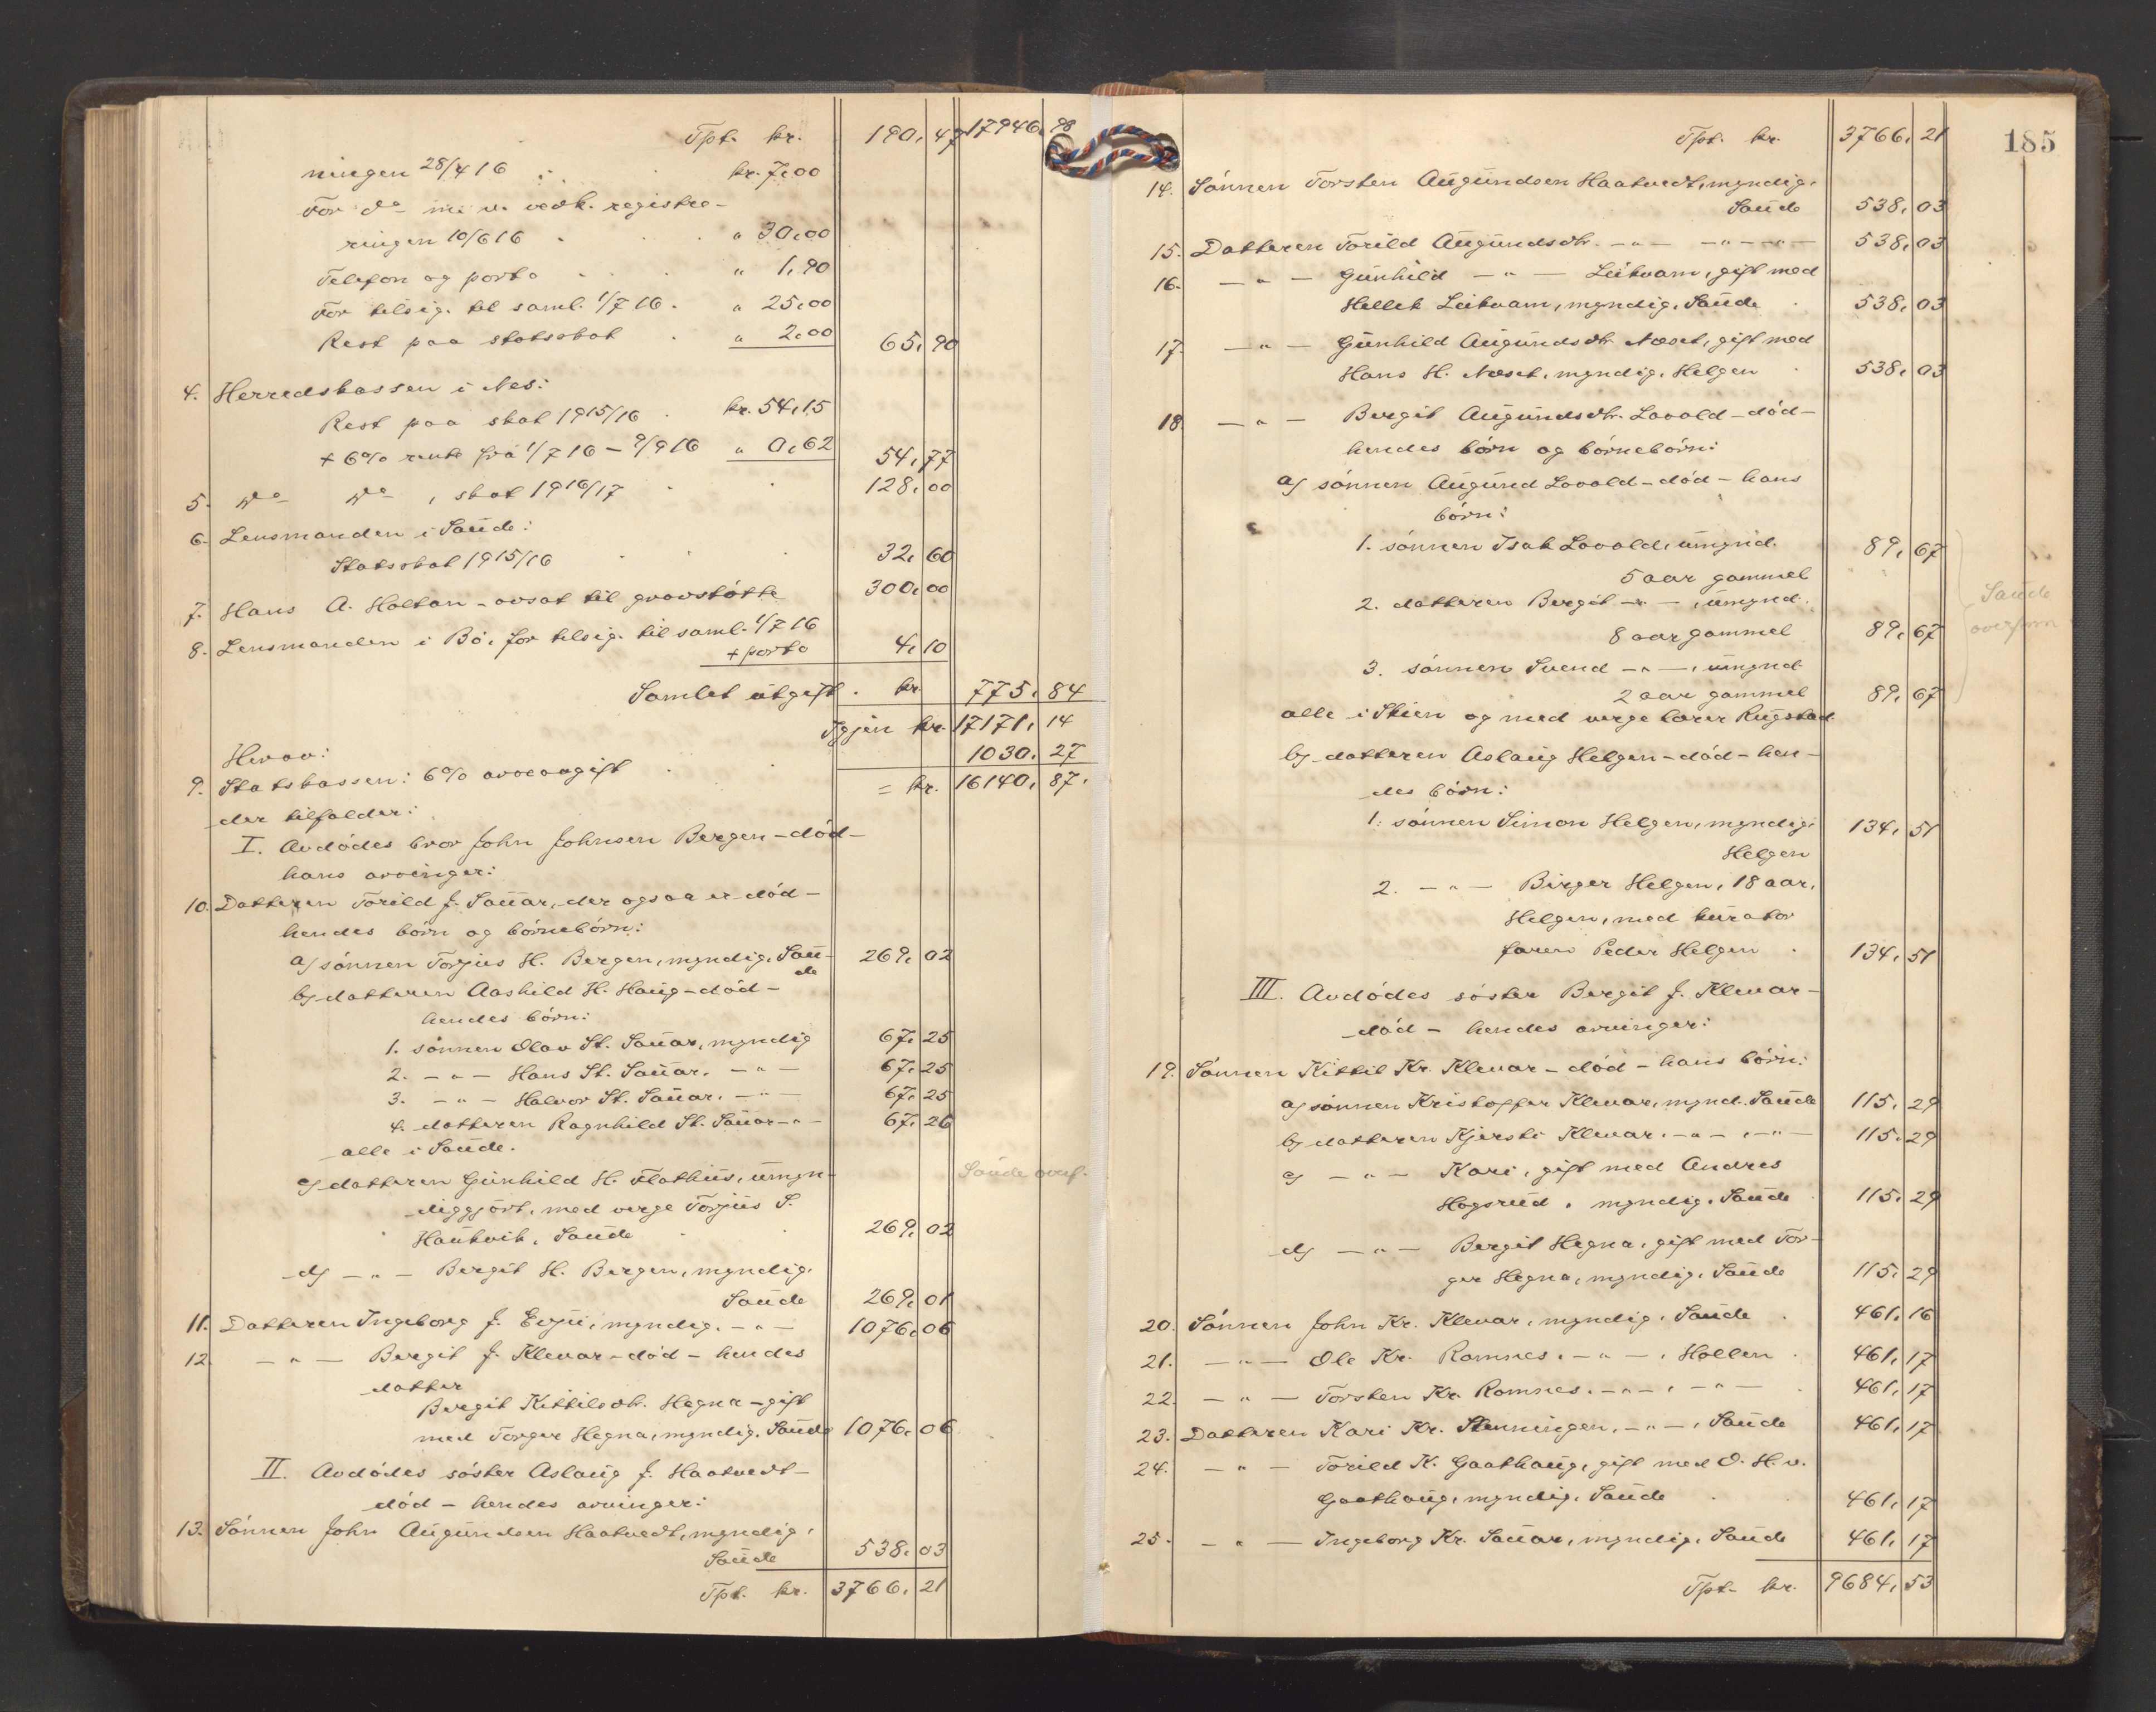 Tpt. kr. 190,47 17946,98
ningen 28/4 16 . . kr. 7,00
For do m. v. vedk. registre-
ringen 10/6 16 . . . " 30,00
Telefon og porto . . . " 1,90
For tilsig. til saml. 1/7 16 . " 25,00
Rest paa statsskat . " 2,00 65,90
4. Herredskassen i Nes:
Rest paa skat 1915/16 . kr. 54,15
+ 6% rente frå 1/7 16 - 9/9 16 " 0,62 54,77
5. do do , skat 1916/17 . . 128,00
6. Lensmanden i Saude:
Statsskat 1915/16 . . . 32,60
7. Hans A. Holtan - avsat til gravstøtte 300,00
8. Lensmanden i Bø, for tilsig. til saml. 1/7 16
+ porto 4,10
Samlet utgift . kr. 775,84
Igjen kr. 17171,14
Herav:
9. Statskassen: 6% arveavgift . 1030,27
= kr. 16140,87.
der tilfalder:
I. Avdødes bror John Johnsen Bergen - død -
hans arvinger:
10. Datteren Torild J. Sauar, der ogsaa er død -
hendes børn og børnebørn:
a) sønnen Torjus H. Bergen, myndig, Sau- 269,02
de
b) datteren Aashild H. Haug - død -
hendes børn:
1. sønnen Olav St. Sauar, myndig 67,25
2. - " - Hans St. Sauar, - " - 67,25
3. - " - Halvor St. Sauar, - " - 67,25
4. datteren Ragnhild St. Sauar - " - 67,26
alle i Saude.
c) datteren Gunhild H. Flathus, umyn- Saude overf.
diggjort, med verge Torjus S.
Haukvik, Saude . 269,02
d) - " - Bergit H. Bergen, myndig,
Saude 269,01
11. Datteren Ingeborg J. Evju, myndig, - " - 1076,06
12. - " - Bergit J. Klevar - død - hendes
datter
Bergit Kittilsdt. Hegna - gift
med Torger Hegna, myndig, Saude 1076,06
II. Avdødes søster Aslaug J. Haatvedt -
død - hendes arvinger:
13. Sønnen John Augundsen Haatvedt, myndig,
Saude 538,03
Tpt. kr. 3766,21
185
Tpt. kr. 3766,21
14. Sønnen Torsten Augundsen Haatvedt, myndig,
Saude 538,03
15. Datteren Torild Augundsdtr. - " - - " - " - 538,03
16. - " - Gunhild - " - Leikvam, gift med
Hellek Leikvam, myndig, Saude . 538,03
17. - " - Gunhild Augundsdtr. Næset, gift med
Hans H. Næset, myndig, Helgen . 538,03
18. - " - Bergit Augundsdtr. Lovald - død -
hendes børn og børnebørn:
a) sønnen Augund Lovald - død - hans
børn:
1. sønnen Isak Lovald, umynd. 89,67
5 aar gammel
2. datteren Bergit - " - , umynd. Saude
8 aar gammel 89,67 overform
3. sønnen Svend - " - , umynd
2 aar gammel 89,67
alle i Skien og med verge lærer Rugstad.
b) datteren Aslaug Helgen - død - hen-
des børn:
1. sønnen Simon Helgen, myndig, 134,51
Helgen
2. - " - Birger Helgen, 18 aar,
Helgen, med kurator
faren Peder Helgen . 134,51
III. Avdødes søster Bergit J. Klevar -
død - hendes arvinger:
19. Sønnen Kittil Kr. Klevar - død - hans børn:
a) sønnen Kristoffer Klevar, mynd. Saude 115,29
b) datteren Kjersti Klevar, - " - , - " - 115,29
c) - " - Kari, gift med Andres
Hogsrud, myndig, Saude . 115,29
d) - " - Bergit Hegna, gift med Tor-
ger Hegna, myndig, Saude 115,29
20. Sønnen John Kr. Klevar, myndig, Saude . 461,16
21. - " - Ole Kr. Romnes, - " - , Hollen . 461,17
22. - " - Torsten Kr. Romnes, - " - , - " - . 461,17
23. Datteren Kari Kr. Stenningen, - " - , Saude 461,17
24. - " - Torild K. Gaathaug, gift med O. H. v.
Gaathaug, myndig, Saude . . 461,17
25. - " - Ingeborg Kr. Sauar, myndig, Saude 461,17
Tpt. kr. 9684,53